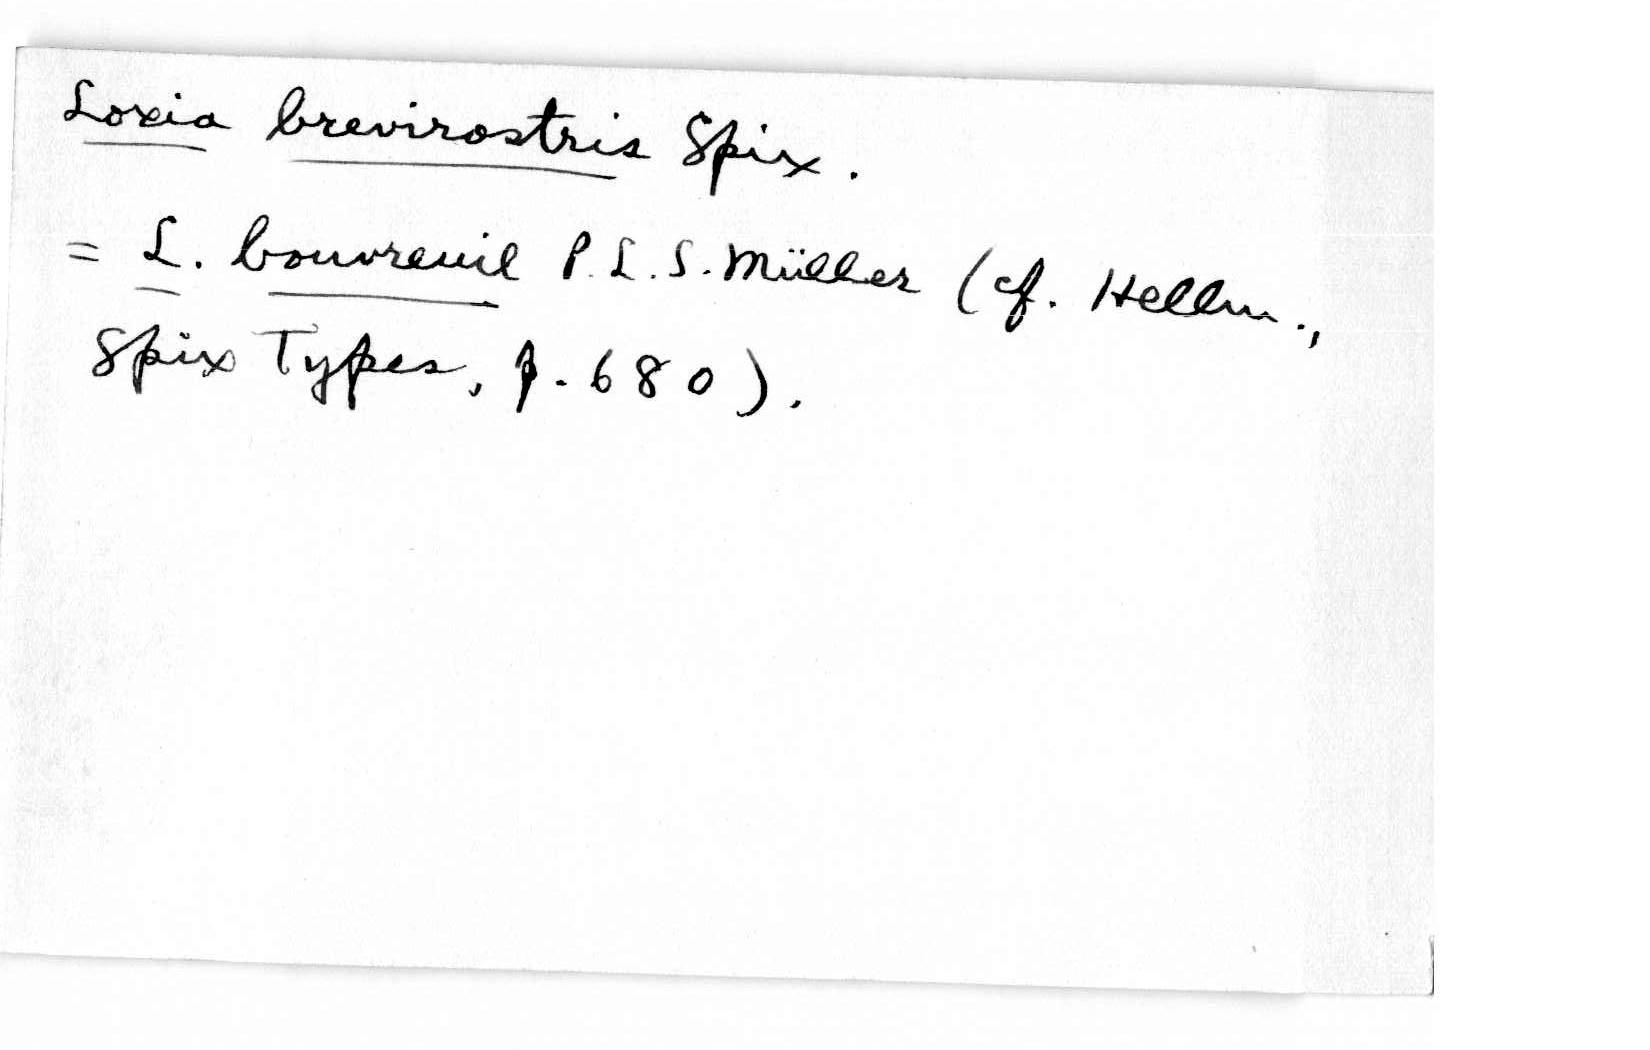 Loxia brevirostris Spix.
= L. bouvreuil P. L. S. Müller (cf. Hellm.,
Spix Types, p. 680).